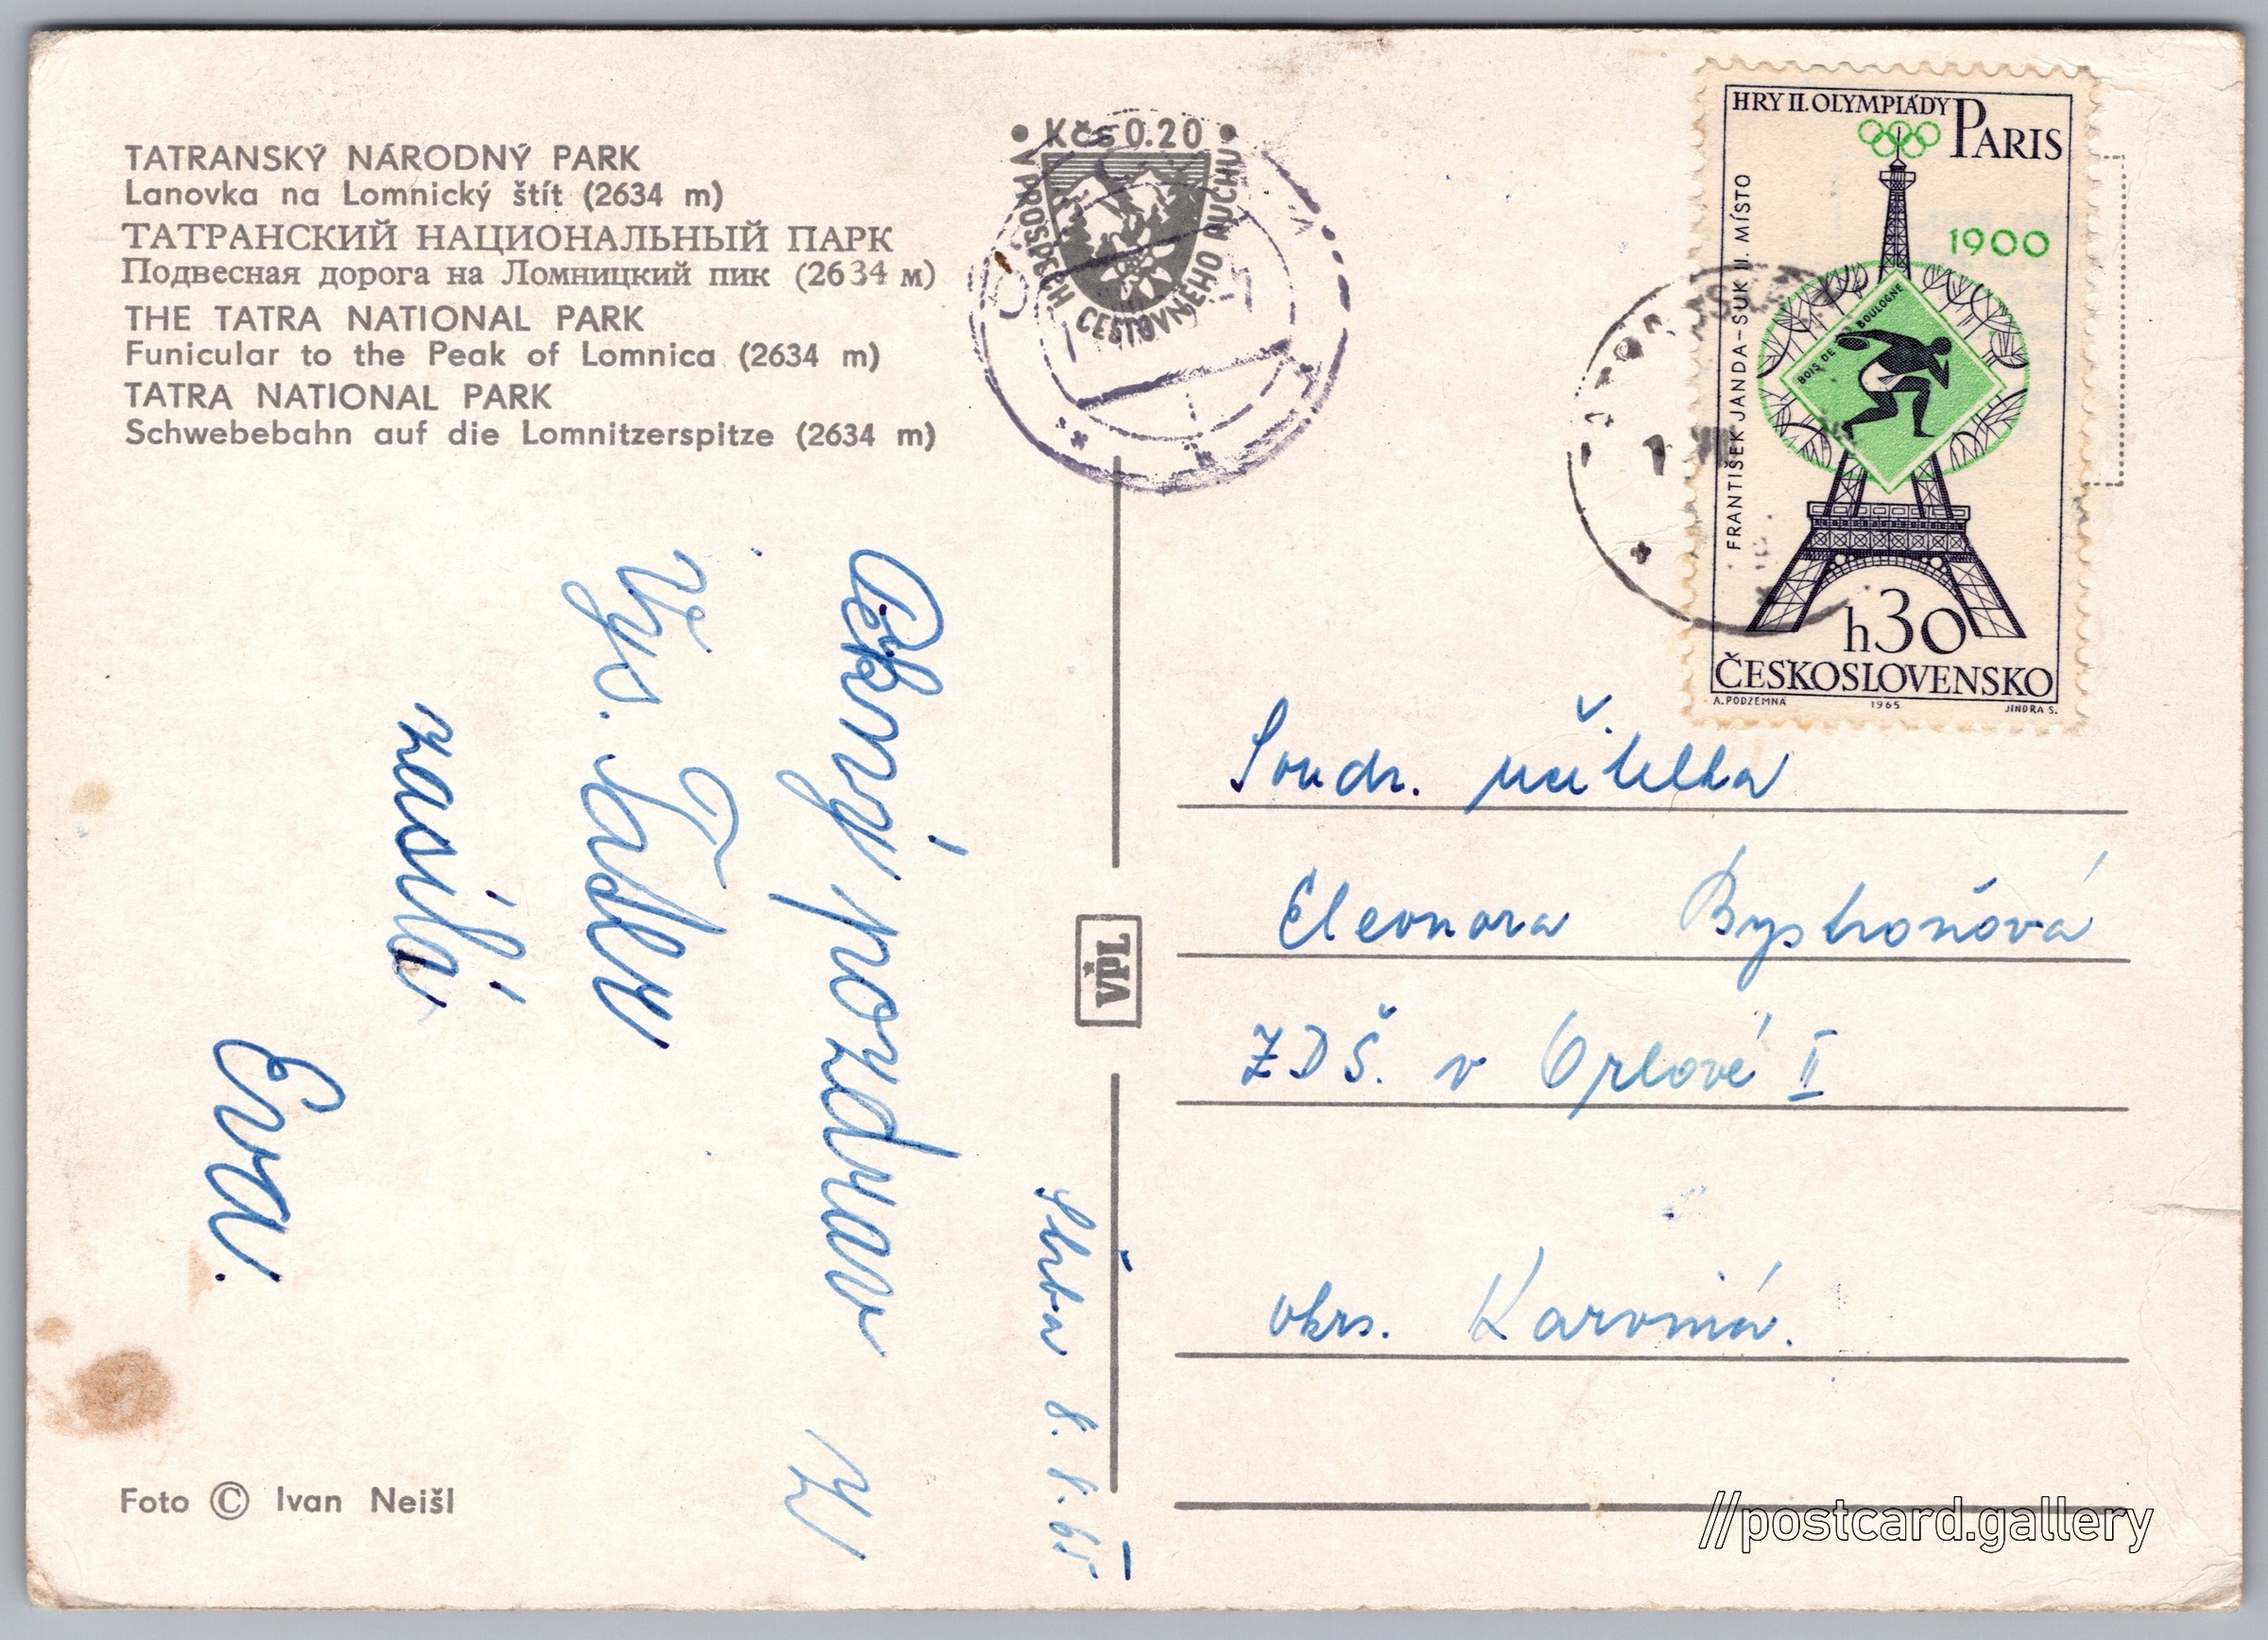 TATRANSKÝ NÁRODNÝ PARK
Lanovka na Lomnický štít (2634 m)
ТАТРАНСКИЙ НАЦИОНАЛЬНЫЙ ПАРК
Подвесная дорога на Ломницкий пик (2634 м)
THE TATRA NATIONAL PARK
Funicular to the Peak of Lomnica (2634 m)
TATRA NATIONAL PARK
Schwebebahn auf die Lomnitzerspitze (2634 m)
• Kčs 0.20 •
V PROSPECH CESTOVNÉHO RUCHU
HRY II. OLYMPIÁDY PARIS
1900
FRANTIŠEK JANDA–SUK II. MÍSTO
BOIS DE BOULOGNE
h30
ČESKOSLOVENSKO
A. PODZEMNÁ 1965 JINDRA S.
pozdrav z
Vys. Tater
zasílá
Eva.
8. 8. 65
VPL
Soudr. učitelka
Eleonora Bystroňová
ZDŠ. v Orlové II
okrs. Karviná.
Foto © Ivan Neišl
//postcard.gallery